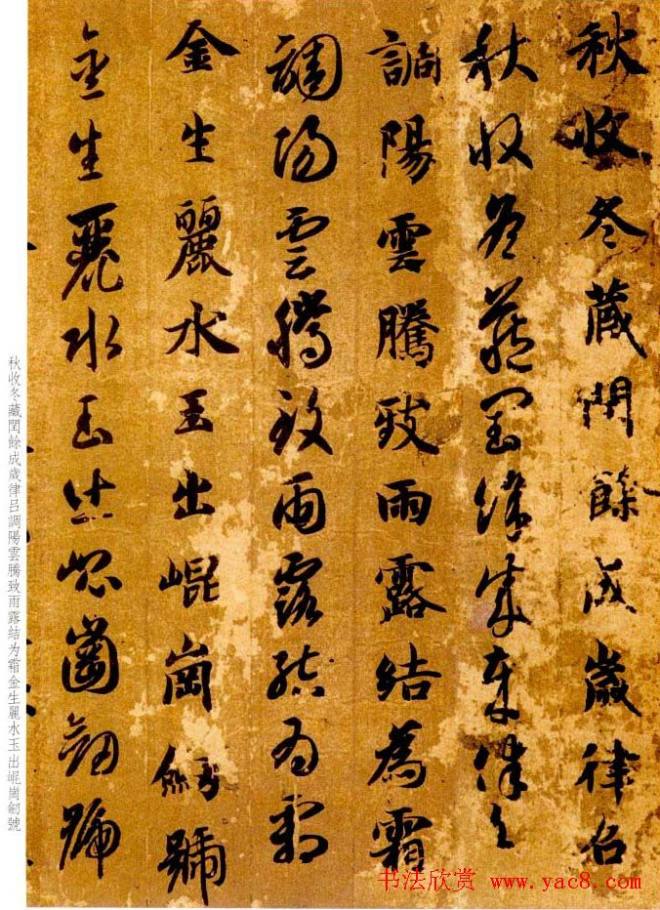 秋收冬藏閏餘成歲律呂
秋收冬藏閏餘成歲律呂
調陽雲騰致雨露結為霜
調陽雲騰致雨露結為霜
金生麗水玉出崐崗劒號
金生麗水玉出崐崗劒號
秋收冬藏閏餘成歲律呂調陽雲騰致雨露結为霜金生麗水玉出崐崗劒號
书法欣赏 www.yac8.com